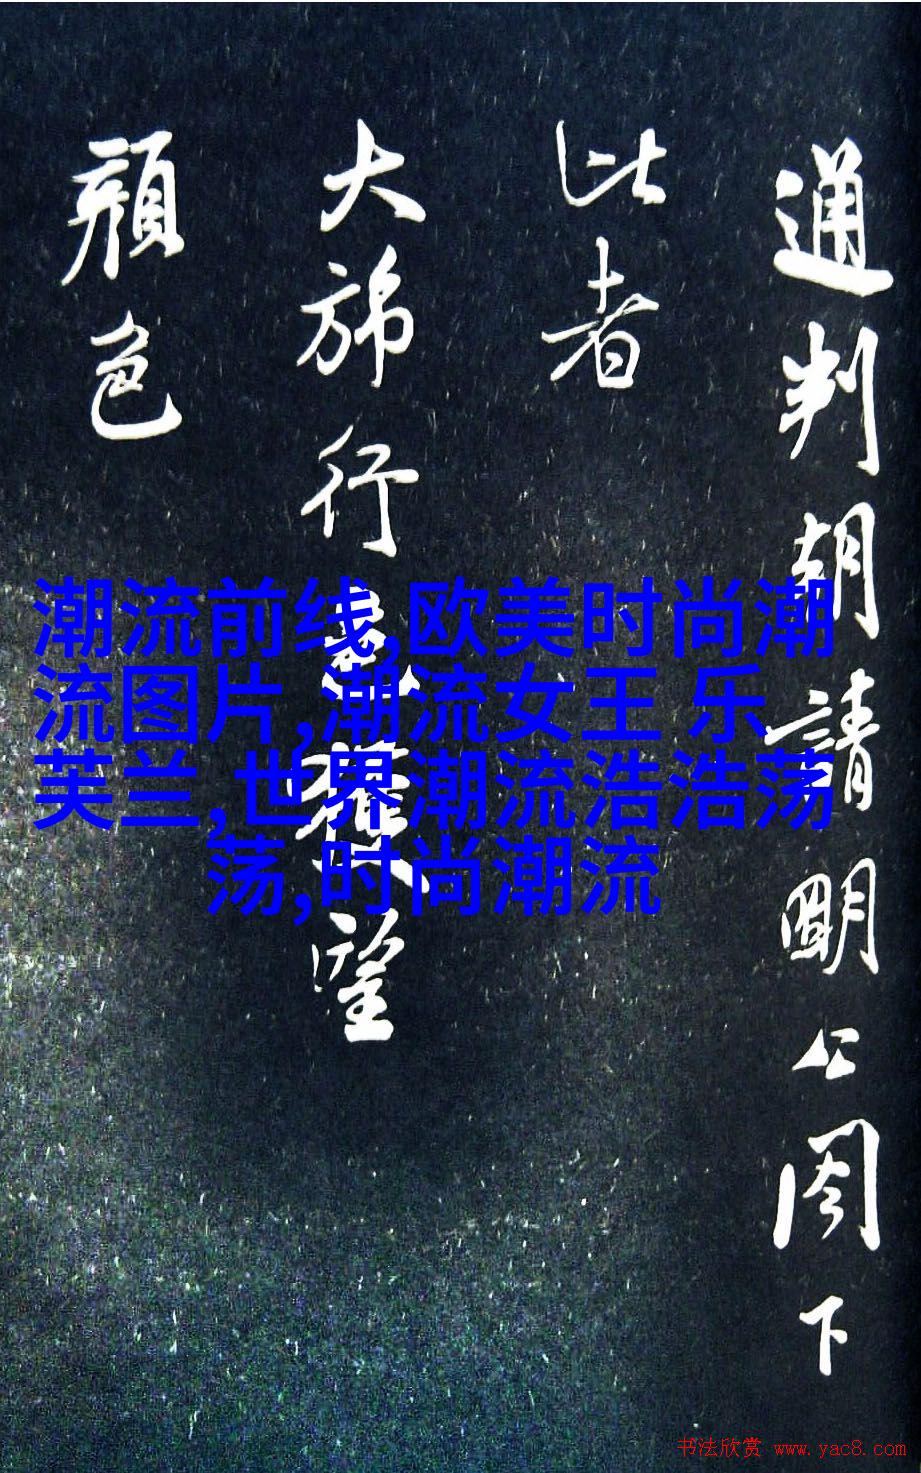 通判朝請明公閤下
此者
大旆行
望
顏色
潮流前线,欧美时尚潮
流图片,潮流女王 乐
芙兰,世界潮流浩浩荡
荡,时尚潮流
书法欣赏 www.yac8.com